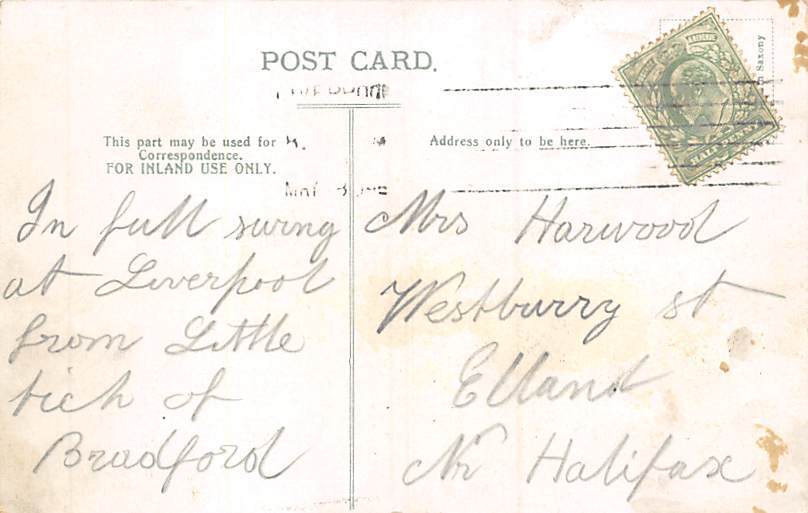 POST CARD.
This part may be used for
Correspondence.
FOR INLAND USE ONLY.
Address only to be here.
HALFPENNY
In full swing
at Liverpool
from Little
tich of
Bradford
Mrs Harwood
Westburry st
Elland
Nr Halifax